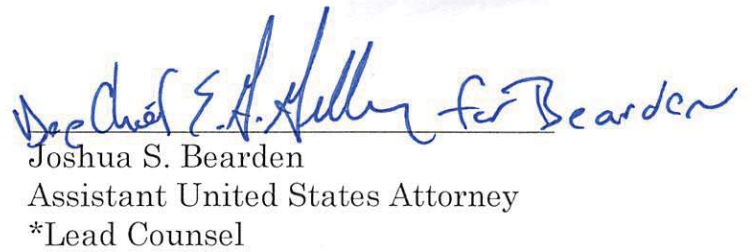 Dep Chief E. G. for Bearden
Joshua S. Bearden
Assistant United States Attorney
*Lead Counsel